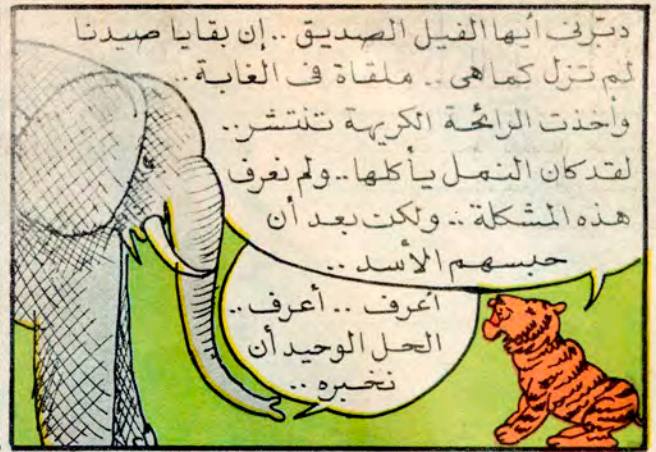 دبرنى أيها الفيل الصديق .. إن بقايا صيدنا
لم تزل كما هى .. ملقاة فى الغابة ..
وأخذت الرائحة الكريهة تنتشر ..
لقد كان النمل يأكلها .. ولم نعرف
هذه المشكلة .. ولكن بعد أن
حبسهم الأسد ..
أعرف .. أعرف ..
الحل الوحيد أن
نخبره ..